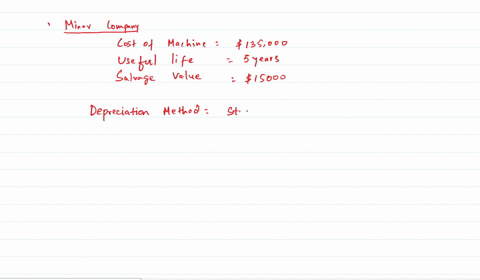 Minor Company
Cost of Machine = $135,000
Useful life = 5 years
Salvage value = $15000
Depreciation Method = St..